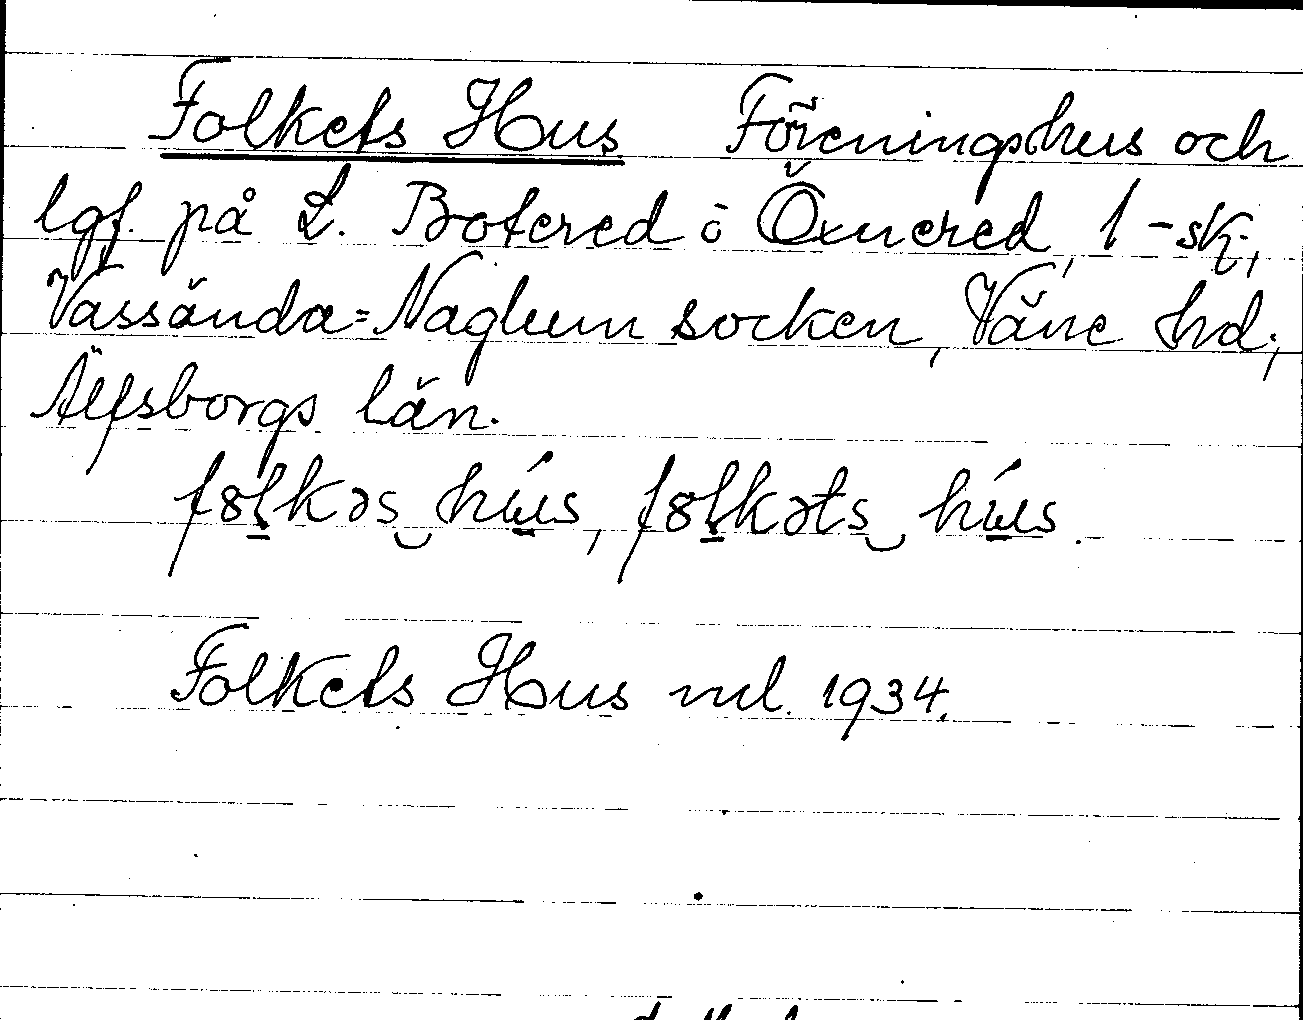 Folkets Hus Föreningshus och
lgf. på L. Botered i Öxnered, 1-sk.,
Vassända=Naglum socken, Väne hd.,
Älfsborgs län.
fɵl̠kəs‿hú̠s, fɵl̠kəts‿hú̠s.
Folkets Hus rul. 1934.